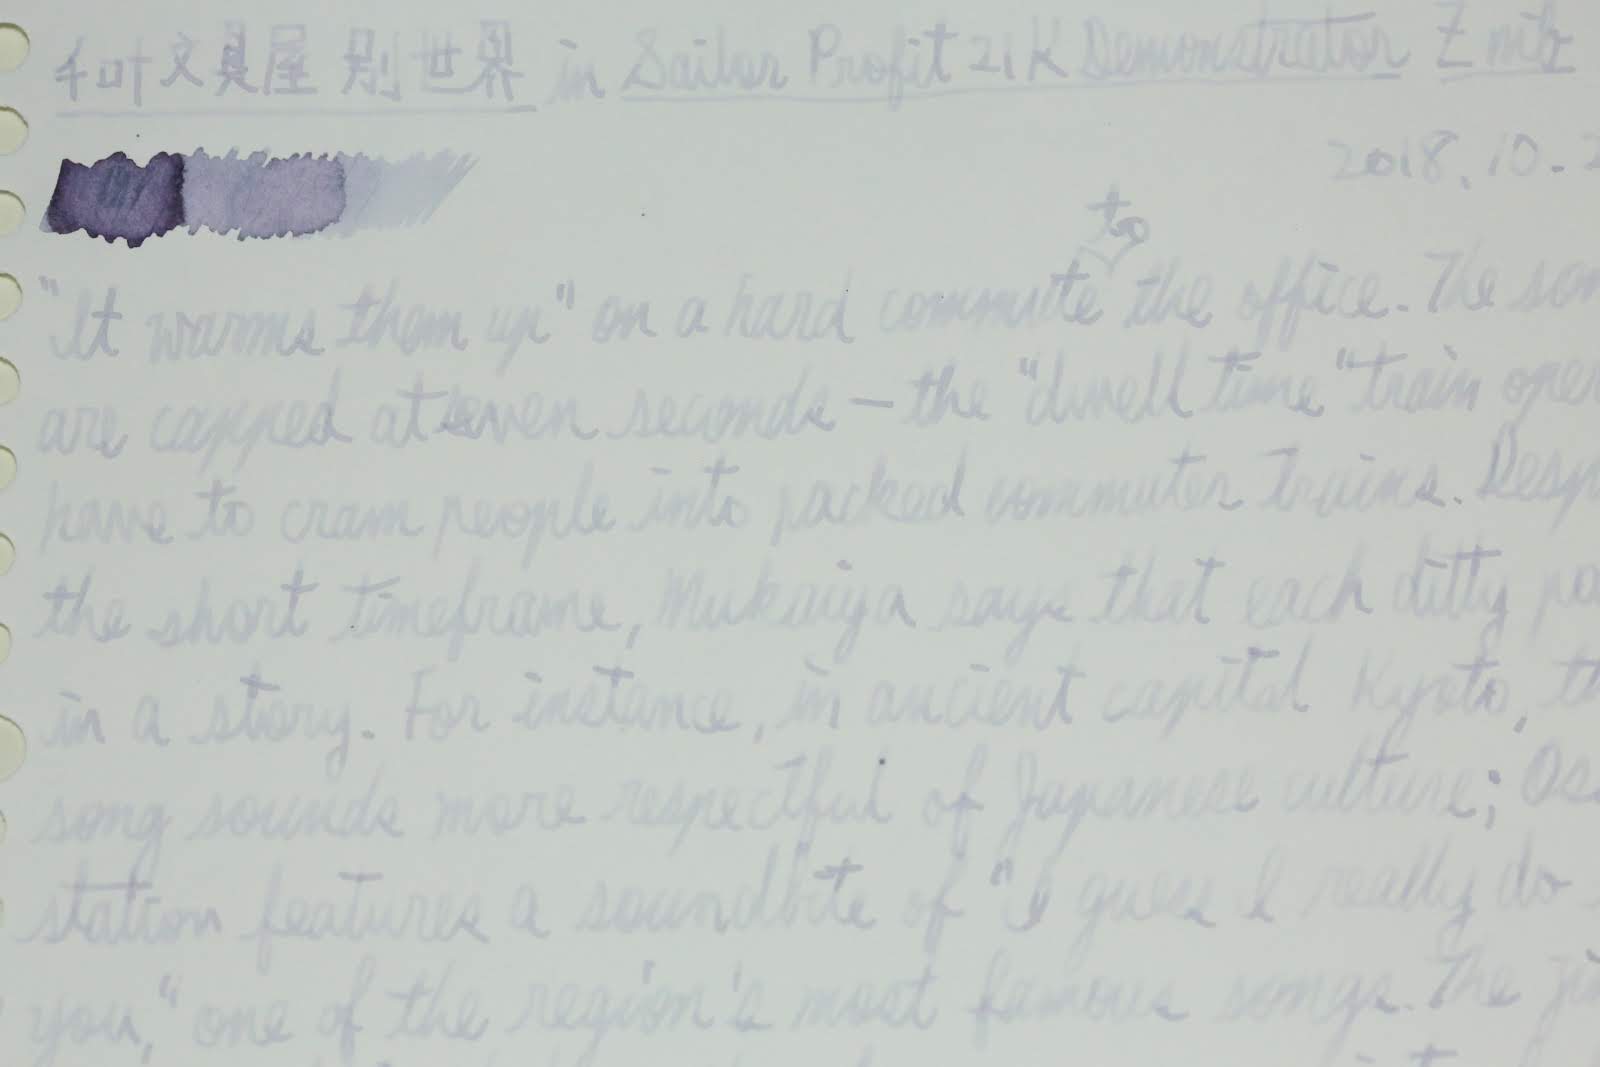 千叶文具屋 别世界 in Sailor Profit 21K Demonstrator Z nib
2018.10.2
to
"It warms them up" on a hard commute the office. The son
are capped at seven seconds — the "dwell time" train oper
have to cram people into packed commuter trains. Desp
the short timeframe, Mukaiya says that each ditty pa
in a story. For instance, in ancient capital Kyoto, th
song sounds more respectful of Japanese culture; Os
station features a soundbite of "I guess I really do
you," one of the region's most famous songs. The ji